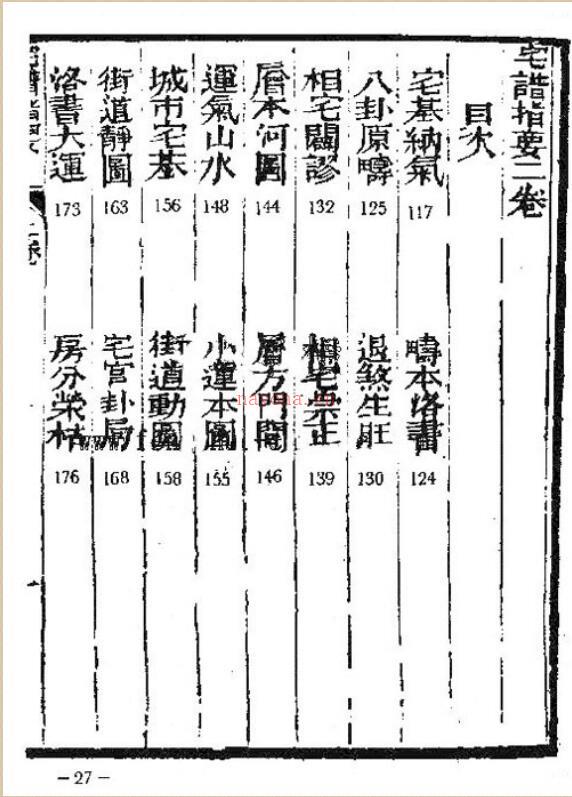 宅譜指要二卷
目次
宅基納氣 117
疇本洛書 124
八卦原疇 125
退煞生旺 130
相宅闢謬 132
相宅崇正 139
層本河圖 144
層方門閭 146
運氣山水 148
小運本圖 155
城市宅基 156
街道動圖 158
街道靜圖 163
宅宫卦局 168
洛書大運 173
房分榮枯 176
－27－